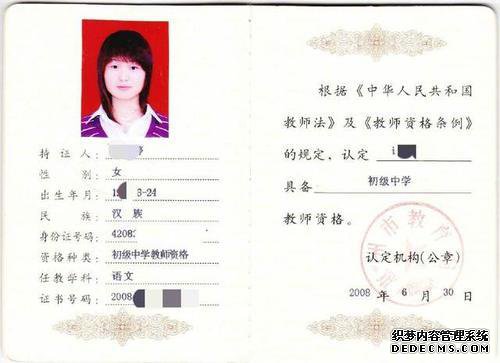 持证人：
性别：女
出生年月：19 8-24
民族：汉族
身份证号码：4208
资格种类：初级中学教师资格
任教学科：语文
证书号码：2008
根据《中华人民共和国
教师法》及《教师资格条例》
的规定，认定
具备 初级中学
教师资格。
州市教育
认定机构(公章)
2008 年 6 月 30 日
织梦内容管理系统
DEDECMS.COM